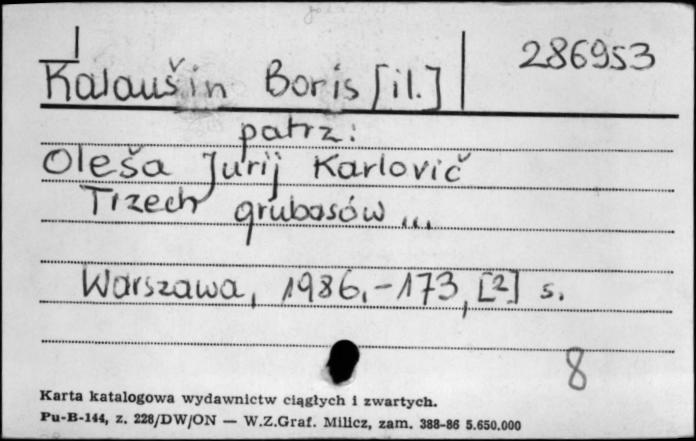 286953
Kalaušin Boris [il.]
patrz:
Oleša Jurij Karlovič
Trzech grubasów ...
Warszawa, 1986.-173, [2] s.
8
Karta katalogowa wydawnictw ciągłych i zwartych.
Pu-B-144, z. 228/DW/ON — W.Z.Graf. Milicz, zam. 388-86 5.650.000